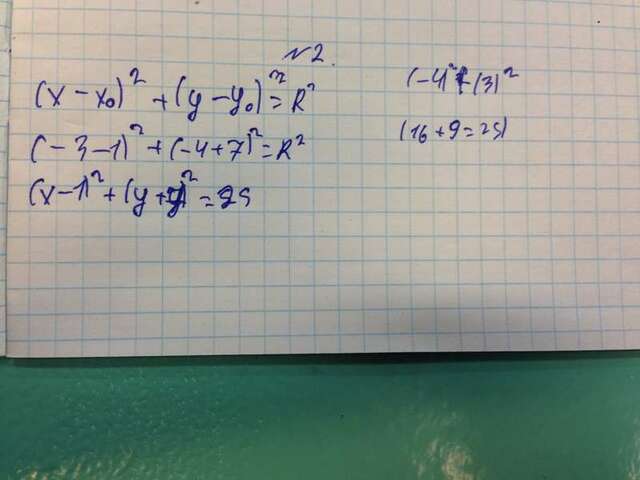 №2.
(x - x₀)² + (y - y₀)² = R²
(-3-1)² + (-4+7)² = R²
(x-1)² + (y+7)² = 25
(-4)² + (3)²
(16+9=25)